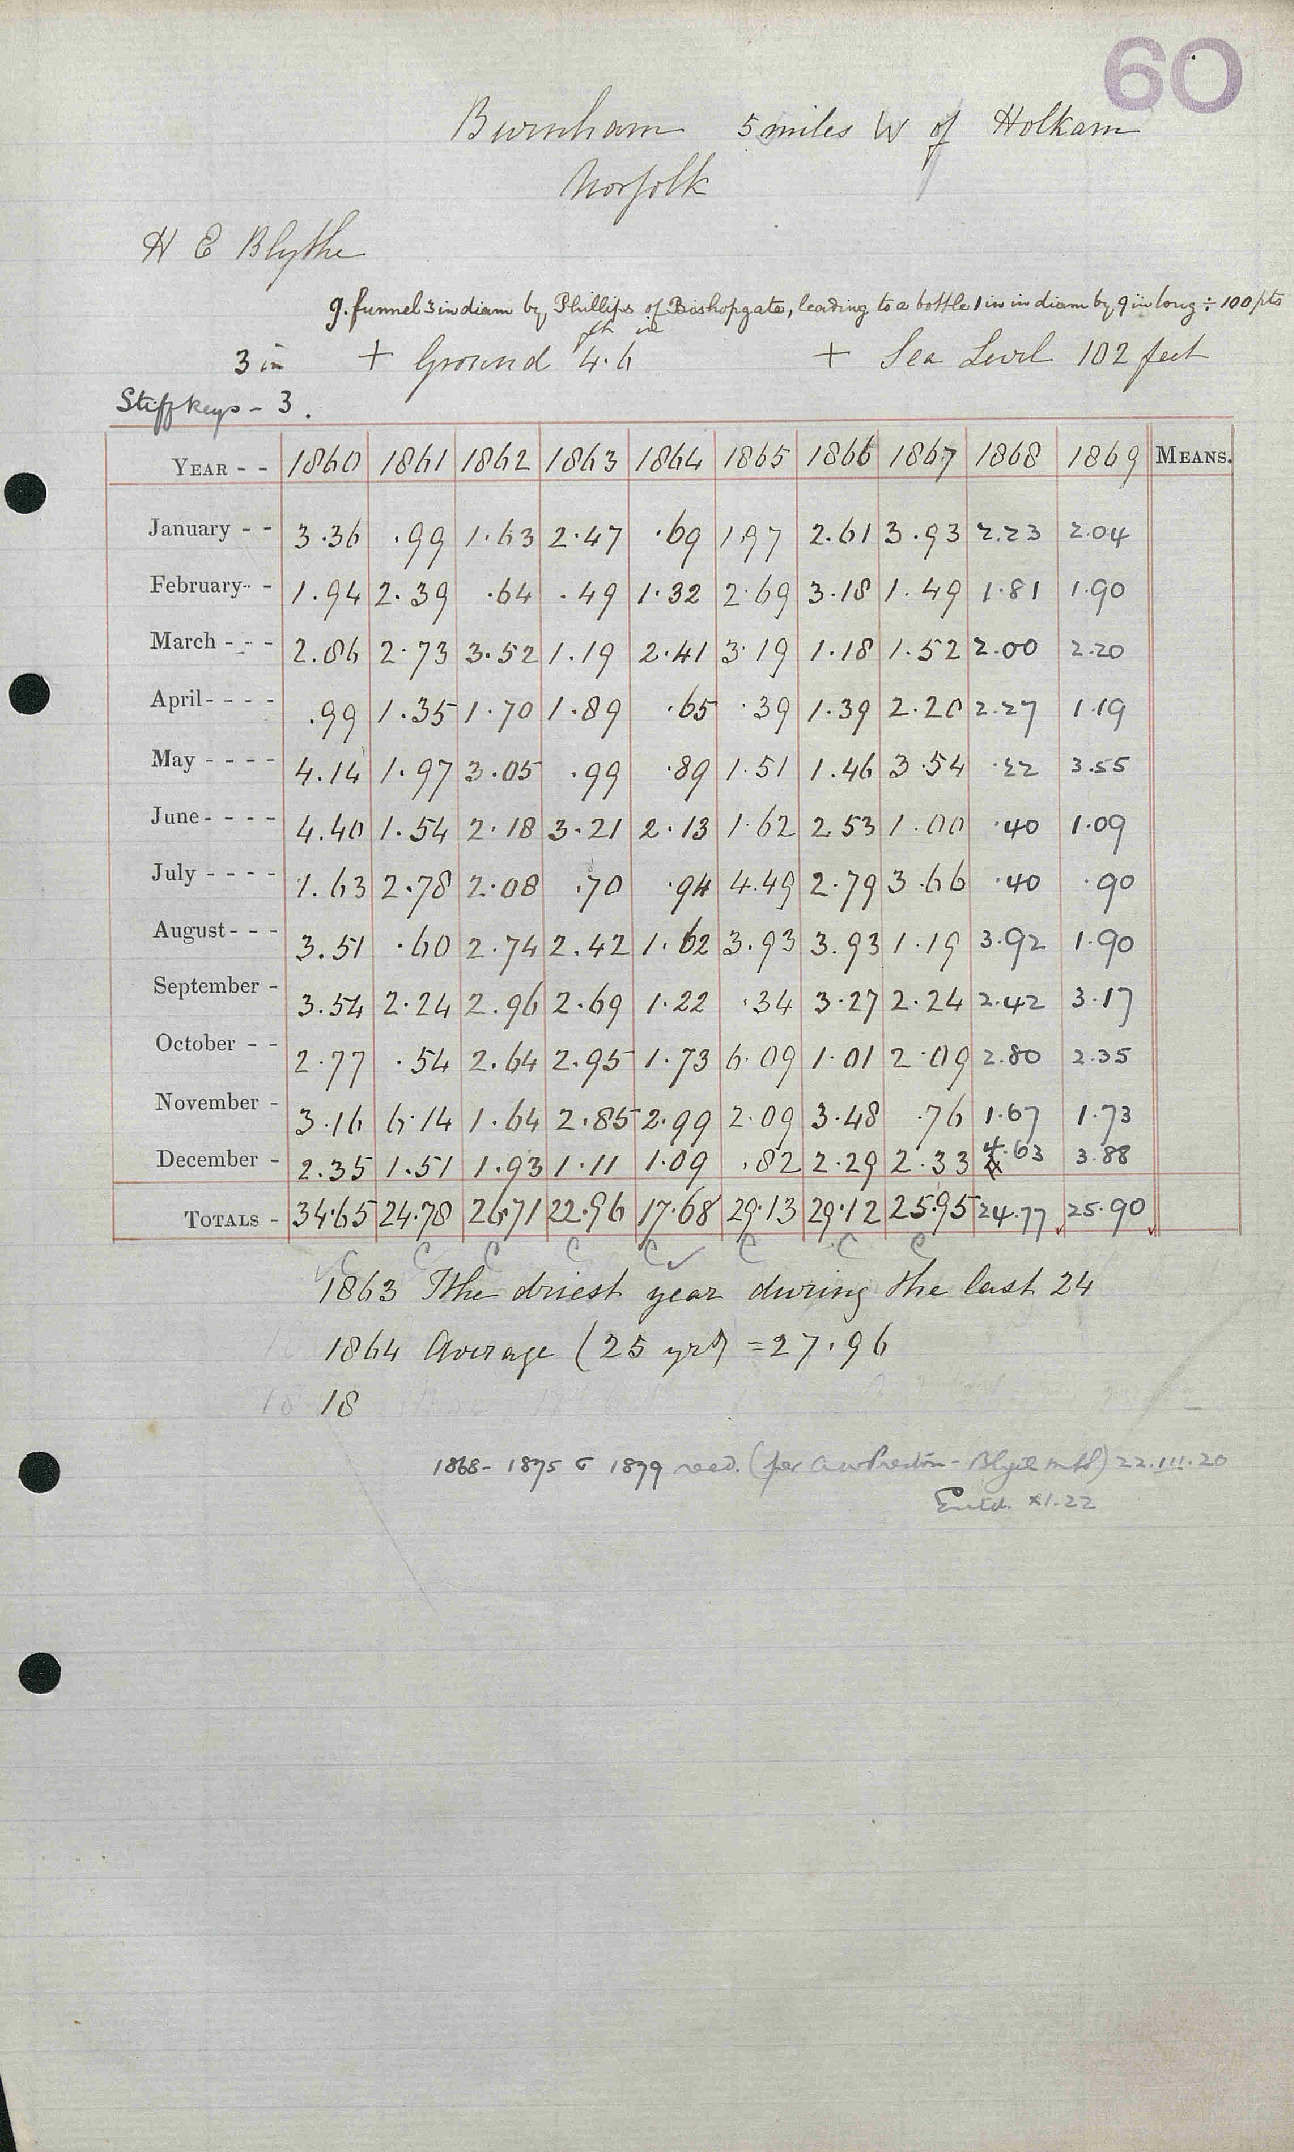 60
Burnham 5 miles W of Holkam
Norfolk
H E Blythe
g. funnel 3 in diam by Phillips of Bishopgate, leading to a bottle 1 in in diam by 9 in long ÷ 100 pts
3 in + Ground 4 ft. 6 in + Sea Level 102 feet
Stiffkeys - 3.
YEAR - - 1860 1861 1862 1863 1864 1865 1866 1867 1868 1869 MEANS.
January - - 3.36 .99 1.63 2.47 .69 1.97 2.61 3.93 2.23 2.04
February - - 1.94 2.39 .64 .49 1.32 2.69 3.18 1.49 1.81 1.90
March - - - 2.86 2.73 3.52 1.19 2.41 3.19 1.18 1.52 2.00 2.20
April - - - - .99 1.35 1.70 1.89 .65 .39 1.39 2.20 2.27 1.19
May - - - - 4.14 1.97 3.05 .99 .89 1.51 1.46 3.54 .22 3.55
June - - - - 4.40 1.54 2.18 3.21 2.13 1.62 2.53 1.00 .40 1.09
July - - - - 1.63 2.78 2.08 .70 .94 4.49 2.79 3.66 .40 .90
August - - - 3.51 .60 2.74 2.42 1.62 3.93 3.93 1.19 3.92 1.90
September - 3.54 2.24 2.96 2.69 1.22 .34 3.27 2.24 2.42 3.17
October - - 2.77 .54 2.64 2.95 1.73 6.09 1.01 2.09 2.80 2.35
November - 3.16 6.14 1.64 2.85 2.99 2.09 3.48 .76 1.67 1.73
December - 2.35 1.51 1.93 1.11 1.09 .82 2.29 2.33 4.63 3.88
TOTALS - 34.65 24.78 26.71 22.96 17.68 29.13 29.12 25.95 24.77 25.90
C C C C C C C C
1863 The driest year during the last 24
1864 Average (25 yrs) = 27.96
18
1868 - 1875 & 1879 recd. (per A W Preston - Blyth MSS) 22.III.20
Entd. XI.22